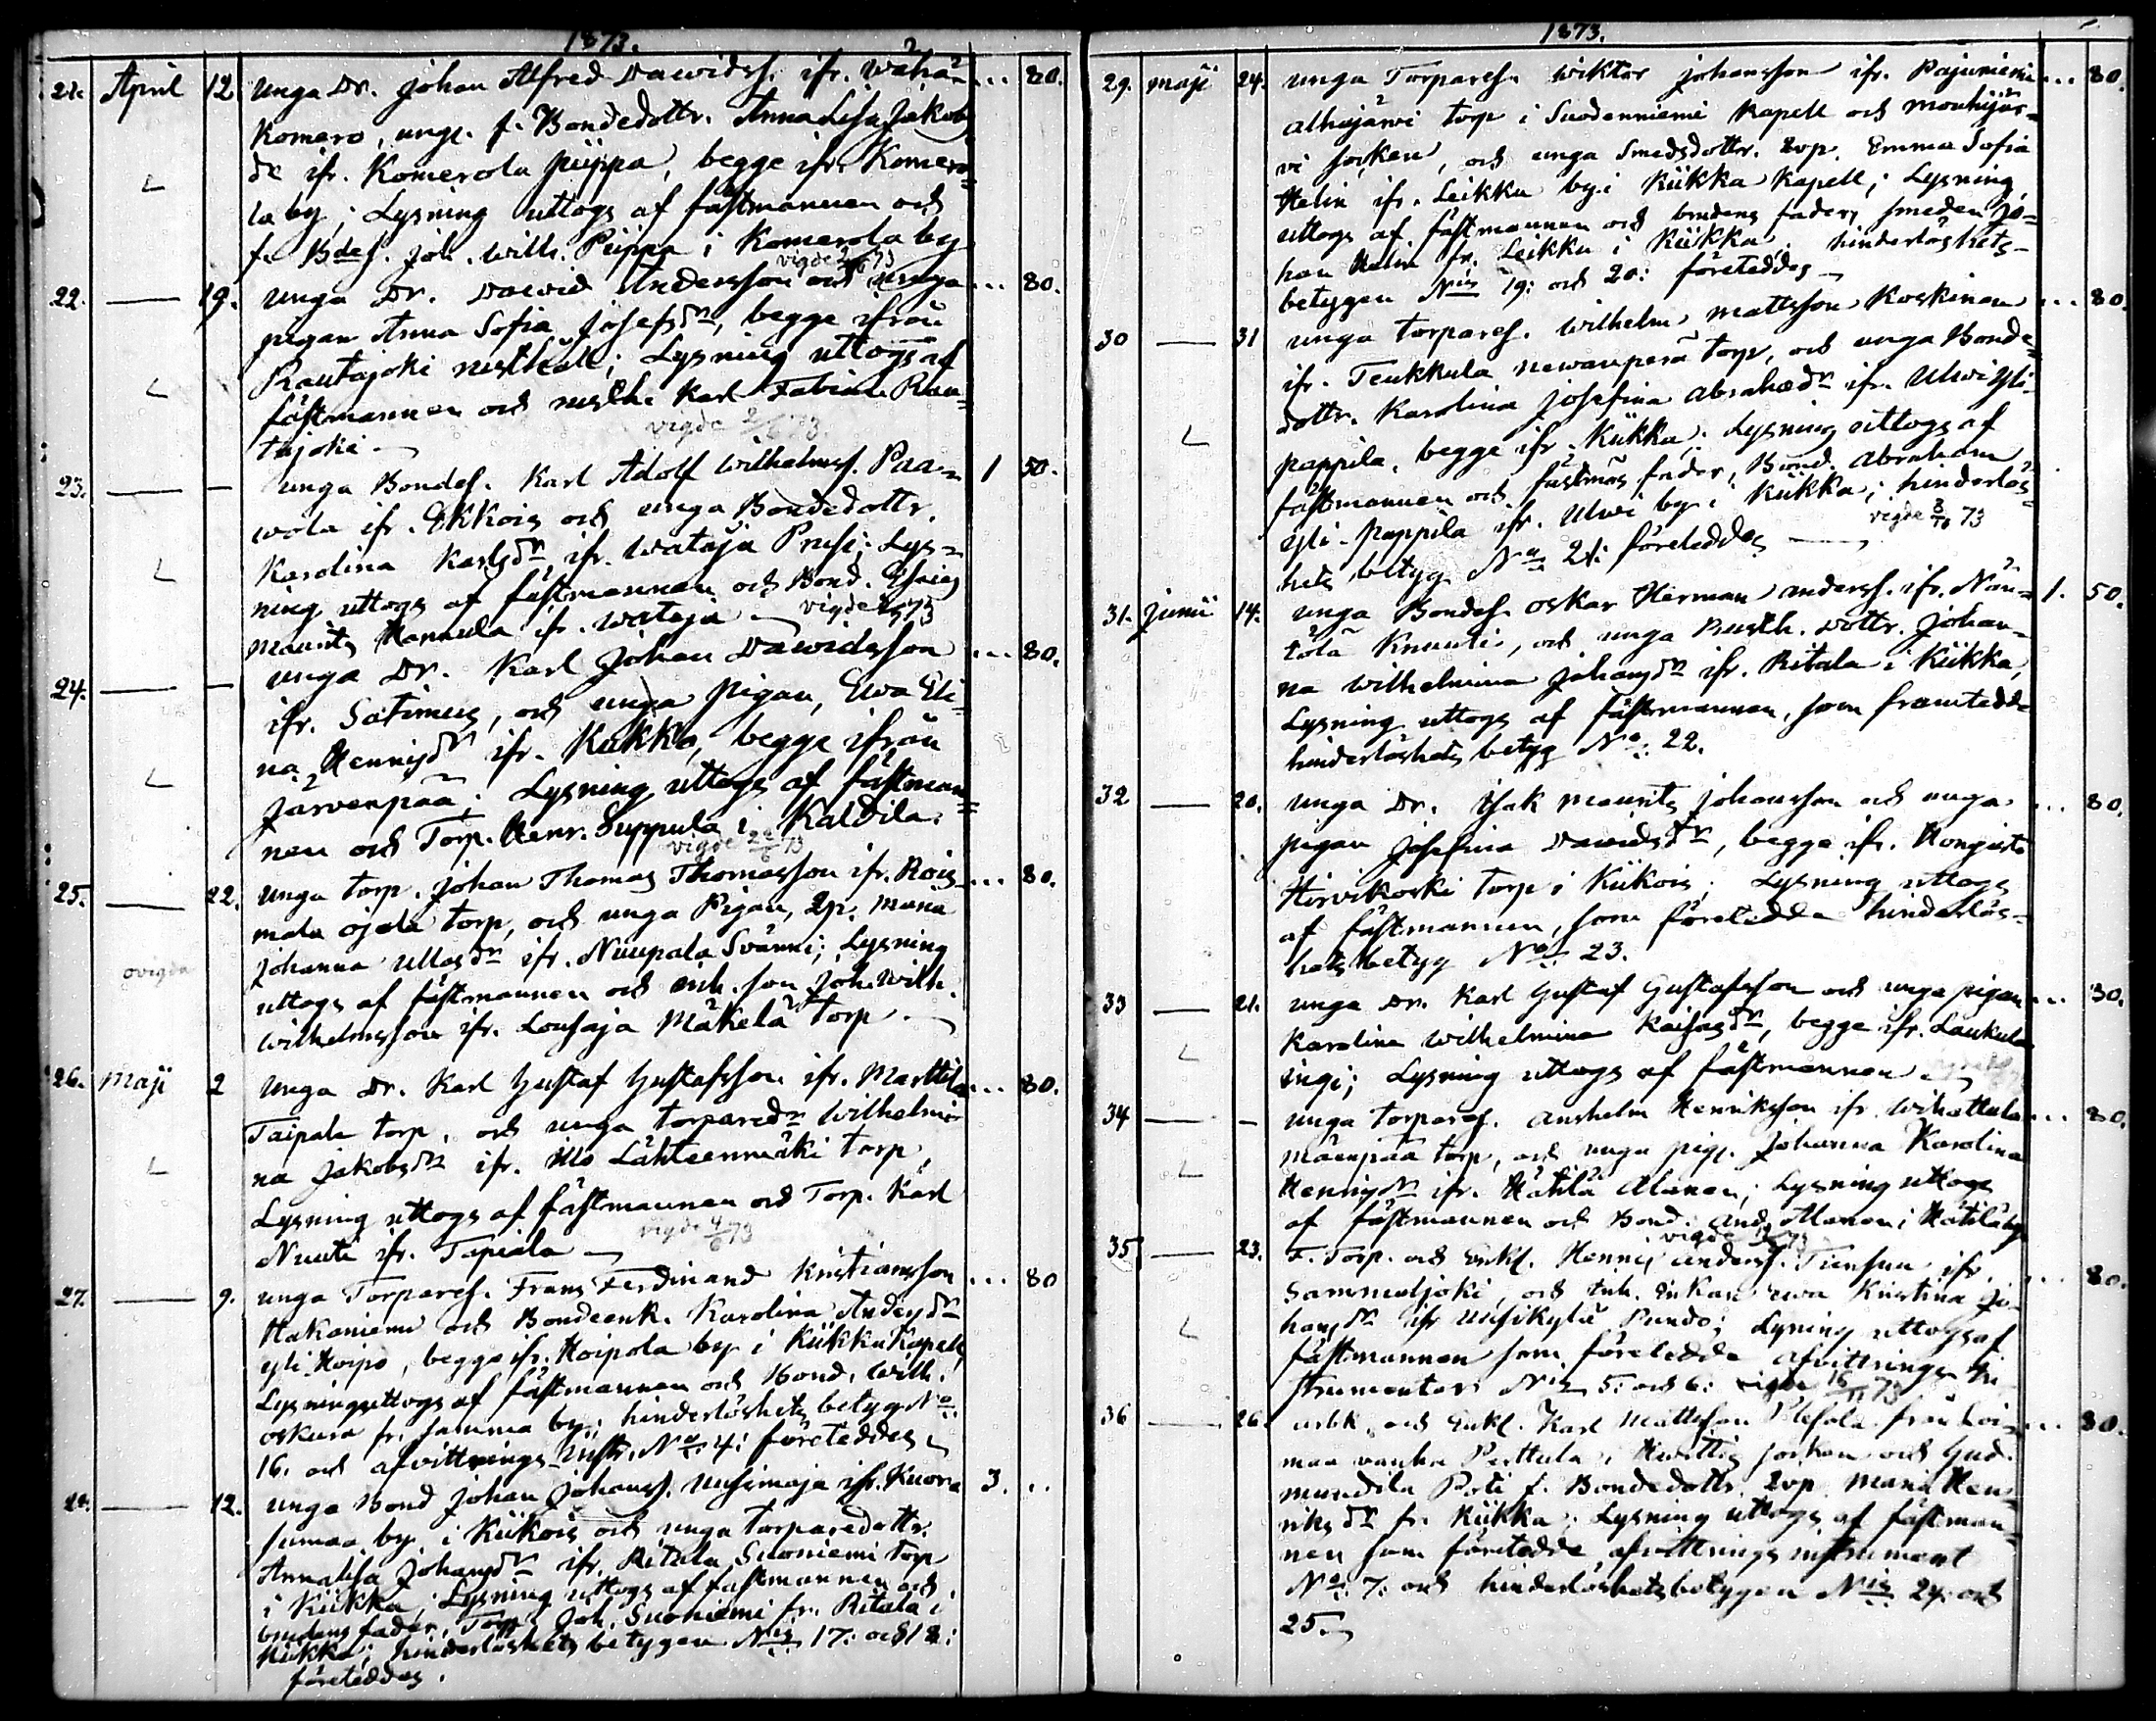 1873.
21. April 12 unga Dr. Johan Alfred Dawidss. ifr. Wähä- ... 80.
Komero, ungl. f. Bondedottr. Anna Lisa Jakobs
dr ifr. Komerola Piippa, begge ifr. Komero=
la by; Lysning uttogs af fästmannen och
f. Bdes. Joh. Wilh. Piippa i Komerola by
vigde 73
22. — 19. unga Dr. Dawid Andersson och unga ... 80.
pigan Anna Sofia Josefsdr, begge ifrån
Rautajoki rusthåll; Lysning uttogs af
fästmannen och rusth. Karl Fabian Rau=
tajoki —
vigde 2/6 73.
23. — — unga Bondes. Karl Adolf Wilhelmss. Paa= 1 50.
wola ifr. Ekkois och unga Bondedottr.
Karolina Karlsdr ifr. Wataja Prusi; Lys=
ning uttogs af fästmannen och Bond. Esaias
Maurits Hannula ifr. Wataja — vigde 73
24. — — unga Dr. Karl Johan Dawidsson ... 80.
ifr. Satimus, och unga pigan, Ewa Eli=
na Hennigsdr ifr. Kukko, begge ifrån
Järvenpää; Lysning uttogs af fästman=
nen och Torp. Henr. Suppula i Kaldila.
vigde 22/6 73
25. — 22. unga torp. Johan Thomas Thomasson ifr. Rois= ... 80.
mala Ojala torp, och unga Pigan, 2p. Maria
Johanna Ullasdr ifr. Nuupala Svänni; Lysning
ovigda
uttogs af fästmannen och enh. son Joh. Wilh.
Wilhelmsson ifr. Lousaja Mäkelä torp —
26. Maji 2 Unga Dr. Karl Gustaf Gustafsson ifr. Marttila ... 80.
Taipale torp, och unga torparedr Wilhelmi=
na Jakobsdr ifr. Illo Lähteenmäki torp,
Lysning uttogs af fästmannen och Torp. Karl
Nuuti ifr. Tapiola —
vigde 4/6 73
27. — 9. unga Torpares. Frans Ferdinand Kristiansson ... 80
Hakaniemi och Bondeenk. Karolina Andersdr
Yli Hoipo, begge ifr. Hoipola by i Kiikka Kapell,
Lysning uttogs af fästmannen och Bond. Wilh.
Oskura fr. samma by; hinderlöshets betyg No.
16. och afvittrings Instr. No. 4: företeddes —
28. — 12. unga Bond Johan Johanss. Uusimaja ifr. Kuora= 3. ..
sumaa by i Kiikois och unga torparedottr.
Annalisa Johansdr ifr. Ritala Suoniemi torp
i Kiikka; Lysning uttogs af fästmannen och
brudens fader, Torp. Joh. Suoniemi fr. Ritala i
Kiikka; hinderlöshets betygen Nis 17: och 18:
företeddes.
1873.
29. Maji 24. unga Torpares. Wiktor Johansson ifr. Pajuniemi ... 80.
Alhojärvi torp i Suodenniemi Kapell och Mouhijär=
vi socken, och unga Smedsdottr. 2vp. Emma Sofia
Helin ifr. Leikku by i Kiikka Kapell; Lysning
uttogs af fästmannen och brudens fader, smeden Jo=
han Helin fr. Leikku i Kiikka. hinderlöshets-
betygen Nis 19: och 20: företeddes —
30 — 31 unga torpares. Wilhelm Mattsson Koskinen ... 80.
ifr. Teukkula Newanperä torp, och unga Bonde=
dottr. Karolina Josefina Abrahadr ifr. Ulwi Yli-
pappila, begge ifr. Kiikka; Lysning uttogs af
fästmannen och fästmös fader, Bond. Abraham
Yli-Pappila ifr. Ulwi by i Kiikka; hinderlös=
vigde 73
hets betyg No. 21: företeddes —
31. Junii 14. unga Bondes. Oskar Herman Anderss. ifr. Nän= 1. 50.
tölä Knuuti, och unga Rusth. dottr. Johan=
na Wilhelmina Johansdr ifr. Ritala i Kiikka,
Lysning uttogs af fästmannen, som framtedde
hinderlöshets betyg No. 22.
32 — 20. unga Dr. Isak Maurits Johansson och unga ... 80.
pigan Josefina Dawidsdr, begge ifr. Hongisto
Hirvikoski torp i Kiikois; Lysning uttogs
af fästmannen, som företedde hinderlös-
hets betyg No. 23.
33 — 21. unga Dr. Karl Gustaf Gustafsson och unga pigan ... 80.
Karolina Wilhelmina Kaisasdr, begge ifr. Laukula
Ingi; Lysning uttogs af fästmannen —
34 — — unga torpares. Anshelm Henriksson ifr. Wihattula ... 80.
Mäenpää torp, och unga pig. Johanna Karolina
Hennigsdr ifr. Hätilä Alanen; Lysning uttogs
af fästmannen och Bond. And. Alanen i Hätilä by
vigde 73
35 — 23. F. Torp. och Enkl. Hennig Anderss. Tiensuu ifr. ... 80.
Sammaljoki, och Inh. Enkan Ewa Kristina Jo=
hansdr ifr. Uusikylä Pundo; Lysning uttogs af
fästmannen som företedde afvittrings In
strumenter Nis 5: och 6: vigde 16/11 73
36 — 26. och Enkl. Karl Mattsson Plesola från Loi= ... 80.
maa vanha Perttula, i Huittis socken och Gud=
mundila Perti f. Bondedottr. 2vp. Maria Hen=
riksdr fr. Kiikka; Lysning uttogs af fästman=
nen som företedde afvittrings instrument
No. 7: och hinderlöshets betygen Nis 24: och
25. —